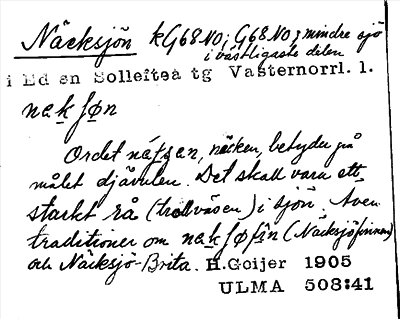 Näcksjön kG68NO; G68NO; mindre sjö
i västligaste delen
i Ed sn Sollefteå tg Västernorrl. l.
nakʃøn
Ordet nǻʃʃen, näcken, betyder på
målet djävulen. Det skall vara ett
starkt rå (trollväsen) i sjön. Även
traditioner om nakʃøfin (Näcksjöfinnen)
och Näcksjö-Brita. H.Goijer 1905
ULMA 508:41